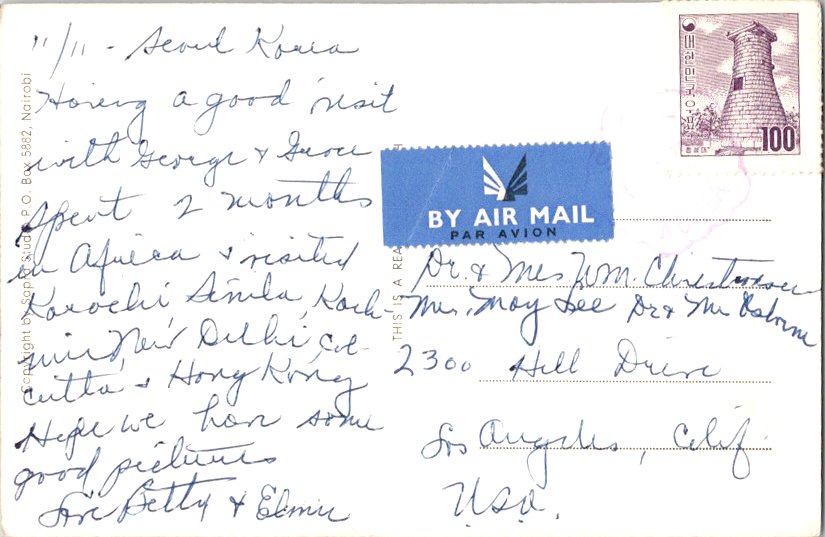 11/11 - Seoul Korea
Having a good visit
with George & Grace
Spent 2 months
in Africa & visited
Karachi, Simla, Kash-
mir, New Delhi, Cal-
cutta, & Hong Kong
Hope we have some
good pictures
Love Betty & Elmer
Copyright by Sapra Studio P.O. Box 5882, Nairobi
THIS IS A REA
H
대한민국우표
첨성대
100
BY AIR MAIL
PAR AVION
Dr. & Mrs Wm. Christ
Mrs. May Lee Dr & Mrs Osborne
2300 Hill Drive
Los Angeles, Calif.
U.S.A.